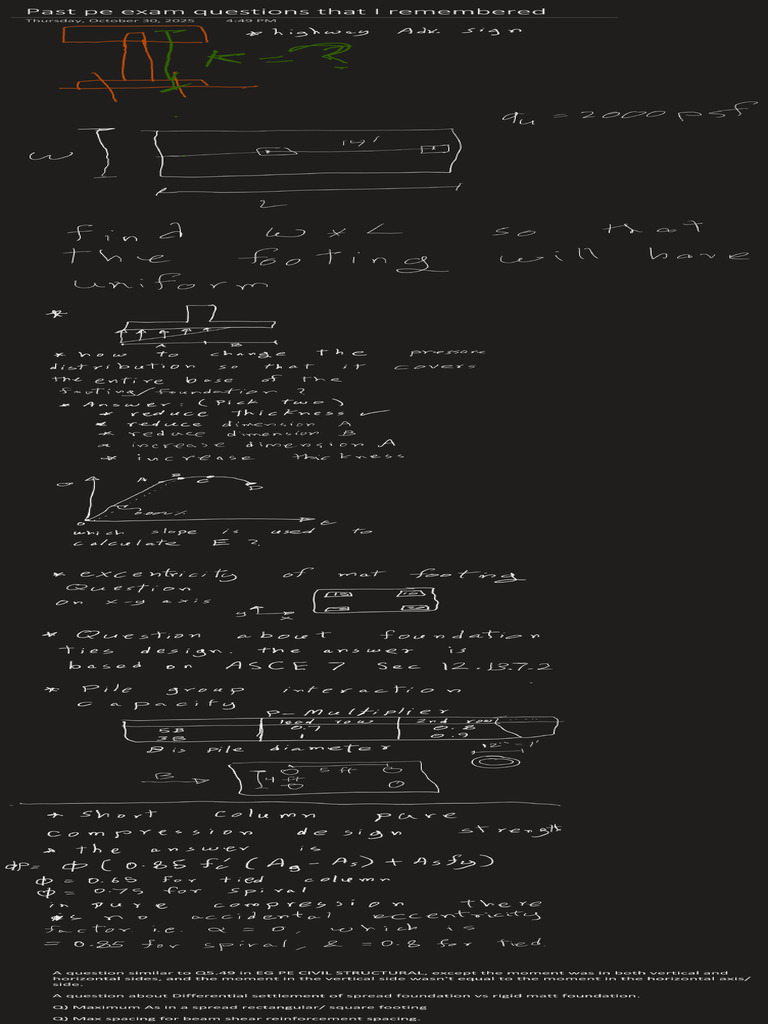 Past pe exam questions that I remembered
Thursday, October 30, 2025 4:49 PM
* highway Adv. sign
K = ?
qu = 2000 psf
W
14'
L
find w x L so that
the footing will have
uniform
*
A B
* how to change the pressure
distribution so that it covers
the entire base of the
footing/foundation ?
* Answer: (Pick two)
* reduce thickness ✓
* reduce dimension A
* reduce dimension B
* increase dimension A
* increase thickness
σ A B C D
0.002%
0 ε
which slope is used to
calculate E ?
* excentricity of mat footing
Question
on x-y axis
y x
* Question about foundation
ties design. the answer is
based on ASCE 7 Sec 12.13.7.2
* Pile group interaction
capacity
P-Multiplier
lead row 2nd row
5B 0.7
3B 1 0.9
B is pile diameter
12"
B 5 ft
4 ft
* short column pure
compression design strength
* the answer is
ϕP = ϕ (0.85 fc' (Ag - As) + As fy)
ϕ = 0.65 for tied column
ϕ = 0.75 for spiral
in pure compression there
is no accidental eccentricity
factor i.e. α = 0, which is
= 0.85 for spiral, & = 0.8 for tied.
A question similar to Q5.49 in EG PE CIVIL STRUCTURAL, except the moment was in both vertical and
horizontal sides, and the moment in the vertical side wasn't equal to the moment in the horizontal axis/
side.
A question about Differential settlement of spread foundation vs rigid matt foundation.
Q) Maximum As in a spread rectangular/ square footing
Q) Max spacing for beam shear reinforcement spacing.